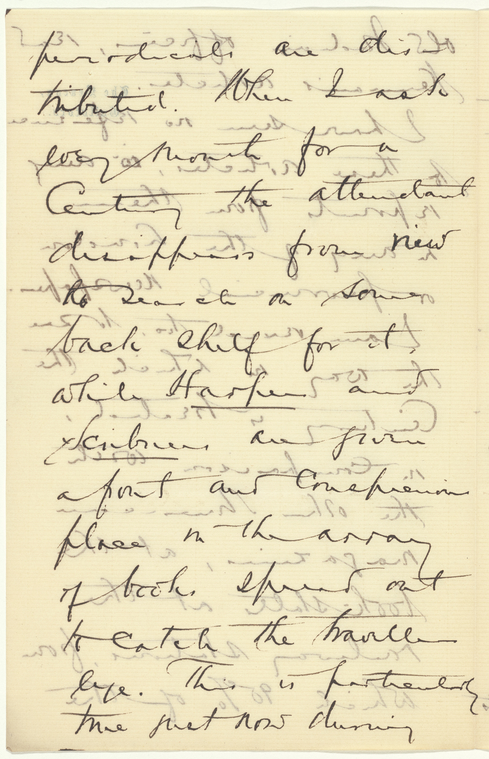 periodicals are dis-
tributed. When I ask
every month for a
Century the attendant
disappears from view
to search on some
back shelf for it,
while Harpers and
Scribners are given
a front and conspicuous
place in the array
of books spread out
to catch the travellers
eye. This is particularly
true just now during